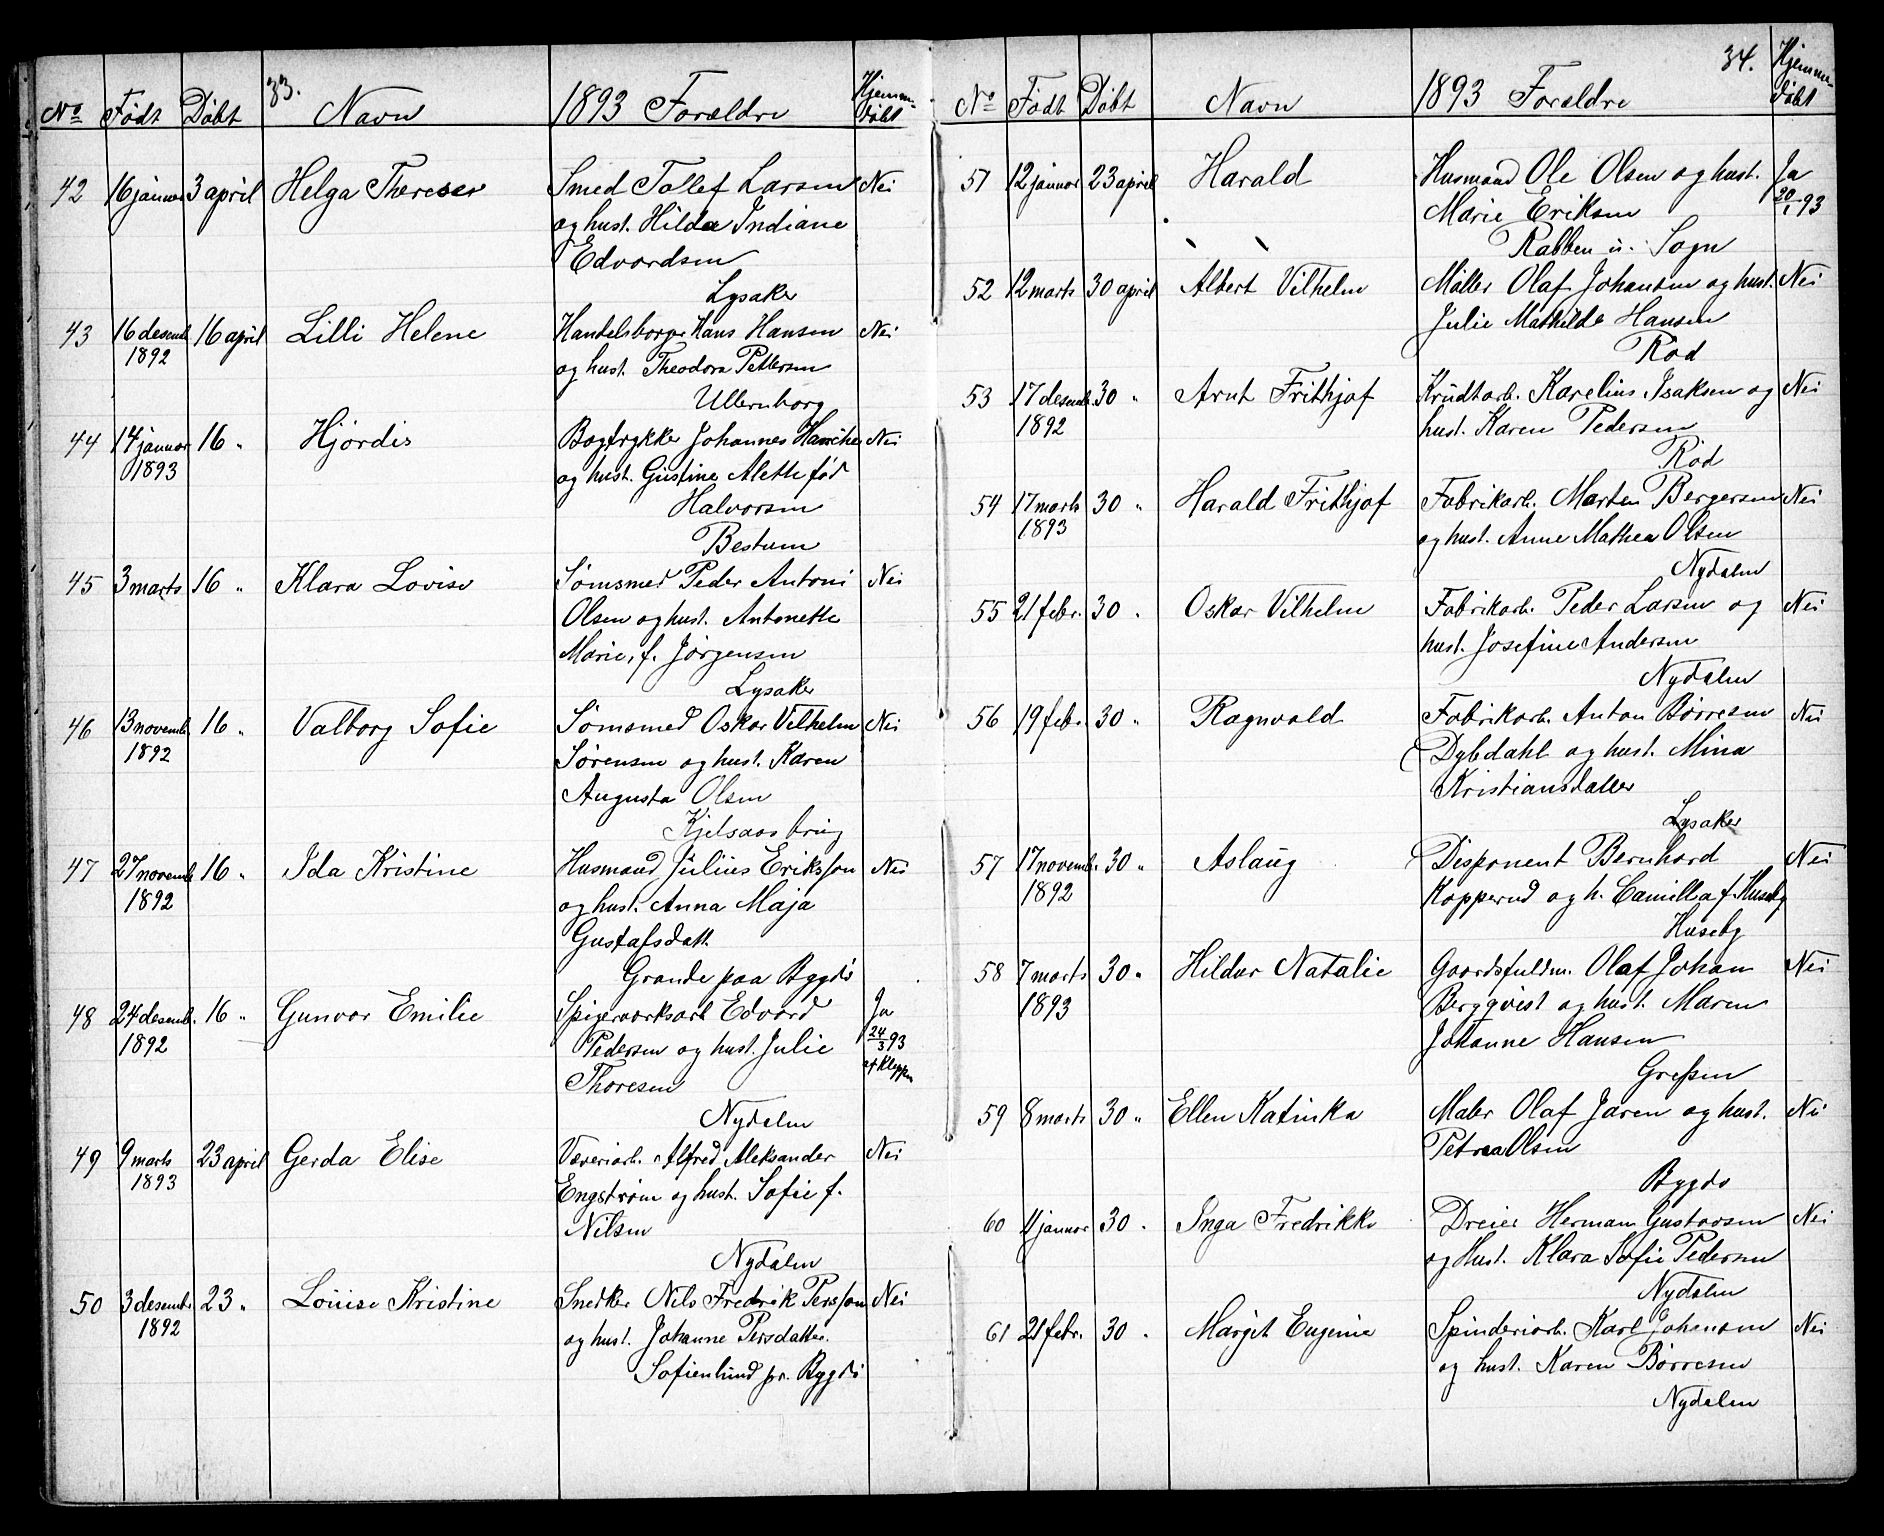 33.
No Født Døbt Navn 1893 Forældre Hjemmedøbt
42 16 januar 3 april Helga Therese Smed Tollef Larsen Nei
og hust. Hilda Indiane
Edvardsen
Lysaker
43 16 desemb. 16 april Lilli Helene Handelsborger Hans Hansen Nei
1892 og hust. Theodora Pettersen
Ullernborg
44 14 januar 16 " Hjördis Bogtrykker Johannes Nei
1893 og hust. Gustine Alette fød
Halvorsen
Bestum
45 3 marts 16 " Klara Lovise Sømsmed Peder Antoni Nei
Olsen og hust. Antonette
Marie, f. Jørgensen
Lysaker
46 13 novemb. 16 " Valborg Sofie Sømsmed Oskar Vilhelm Nei
1892 Sørensen og hust. Karen
Augusta Olsen
Kjelsaas brug
47 27 novemb. 16 " Ida Kristine Husmand Julius Eriksson Nei
1892 og hust. Anna Maja
Gustafsdatt.
Grande paa Bygdø
48 24 desemb. 16 " Gunvor Emilie Spigerverksarb. Edvard Ja
1892 Pedersen og hust. Julie 24/3 93
Thoresen af Kleppen
Nydalen
49 9 marts 23 april Gerda Elise Væveriarb. Alfred Aleksander Nei
1893 Engstrøm og hust. Sofie f.
Nilsen
Nydalen
50 3 desemb. 23 " Louise Kristine Snedker Nils Fredrik Persson Nei
1892 og hust. Johanne Persdatter.
Sofienlund pr. Bygdø
34.
No Født Døbt Navn 1893 Forældre Hjemmedøbt
51 12 januar 23 april Harald Husmand Ole Olsen og hust. Ja
Marie Eriksen 20/1 93
Rabben u. Sogn
52 12 marts 30 april Albert Vilhelm Møller Olaf Johansen og hust. Nei
Julie Mathilde Hansen
Rød
53 17 desemb. 30 " Arnt Frithjof Krudtarb. Karelius Isaksen og Nei
1892 hust. Karen Pedersen
Rød
54 17 marts 30 " Harald Frithjof Fabrikarb. Marten Bergersen Nei
1893 og hust. Anne Mathea Olsen
Nydalen
55 21 febr. 30 " Oskar Vilhelm Fabrikarb. Peder Larsen og Nei
hust. Josefine Andersen
Nydalen
56 19 febr. 30 " Ragnvald Fabrikarb. Anton Børresen Nei
Dybdahl og hust. Mina
Kristiansdatter
Lysaker
57 17 novemb. 30 " Aslaug Disponent Bernhard Nei
1892 Kopperud og h. Camilla f. Huseby
Huseby
58 7 marts 30 " Hildur Natalie Gaardsfuldm. Olaf Johan Nei
1893 Bergqvist og hust. Maren
Johanne Hansen
Grefsen
59 8 marts 30 " Ellen Katinka Maler Olaf Jaren og hust. Nei
Petrea Olsen
Bygdø
60 11 januar 30 " Inga Fredrikke Dreier Herman Gustavsen Nei
og Hust. Klara Sofie Pedersen
Nydalen
61 21 febr. 30 " Margit Eugenie Spinderiarb. Karl Johansen Nei
og hust. Karen Børresen
Nydalen